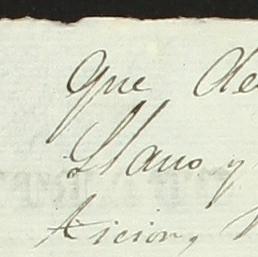 Que de
Llano, y
ticion,